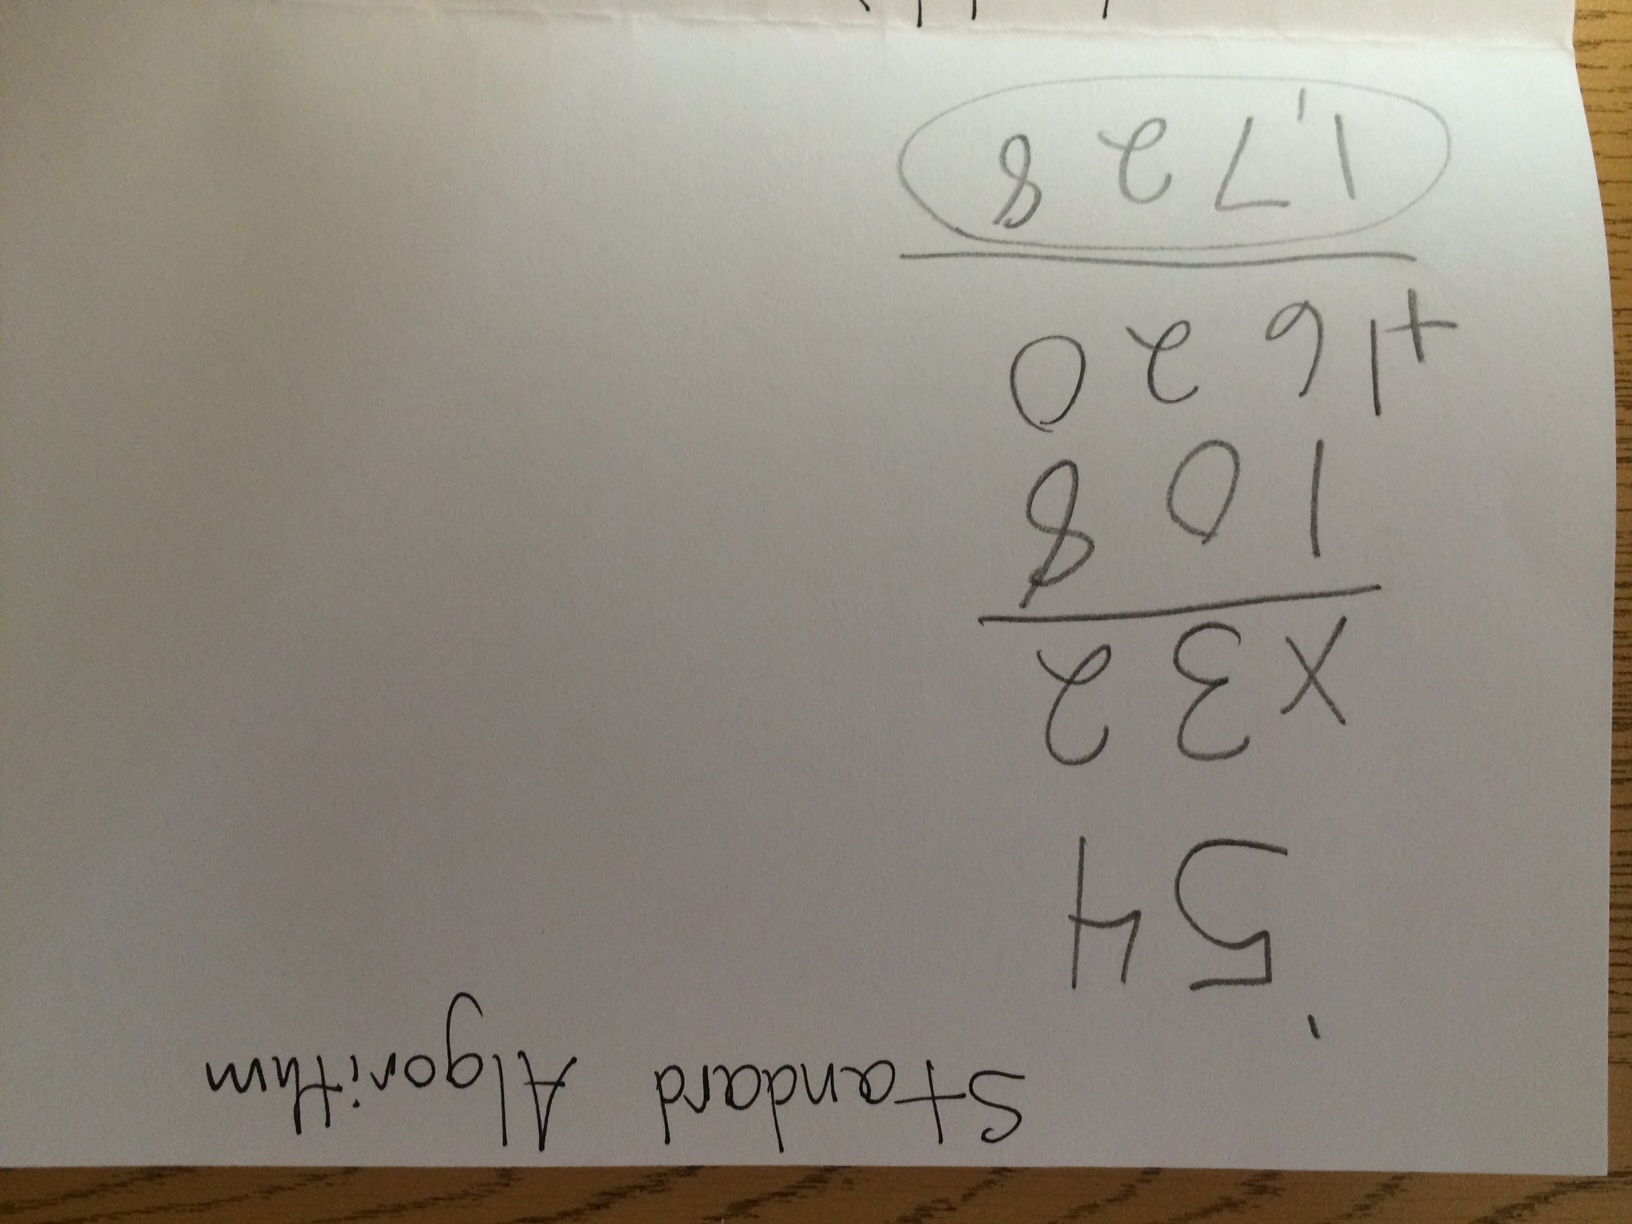 Standard Algorithm
1
54
x32
108
+1620
1,728